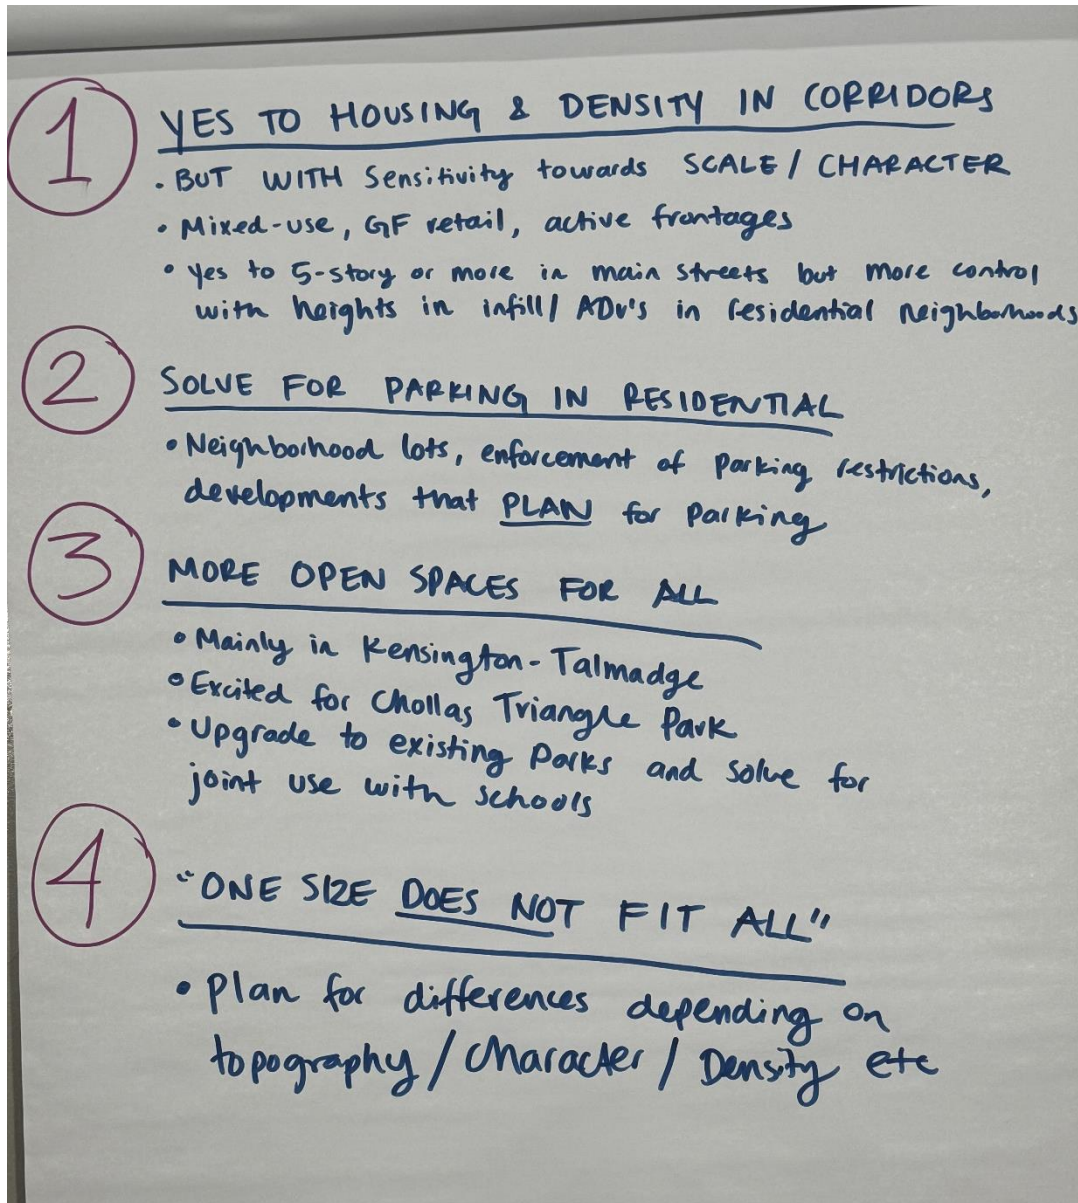 1
YES TO HOUSING & DENSITY IN CORRIDORS
• BUT WITH Sensitivity towards SCALE / CHARACTER
• Mixed-use, GF retail, active frontages
• Yes to 5-story or more in main streets but more control
with heights in infill/ ADU's in residential neighborhoods
2
SOLVE FOR PARKING IN RESIDENTIAL
• Neighborhood lots, enforcement of parking restrictions,
developments that PLAN for parking
3
MORE OPEN SPACES FOR ALL
• Mainly in Kensington-Talmadge
• Excited for Chollas Triangle Park
• Upgrade to existing parks and solve for
joint use with schools
4
"ONE SIZE DOES NOT FIT ALL"
• Plan for differences depending on
topography / Character / Density etc